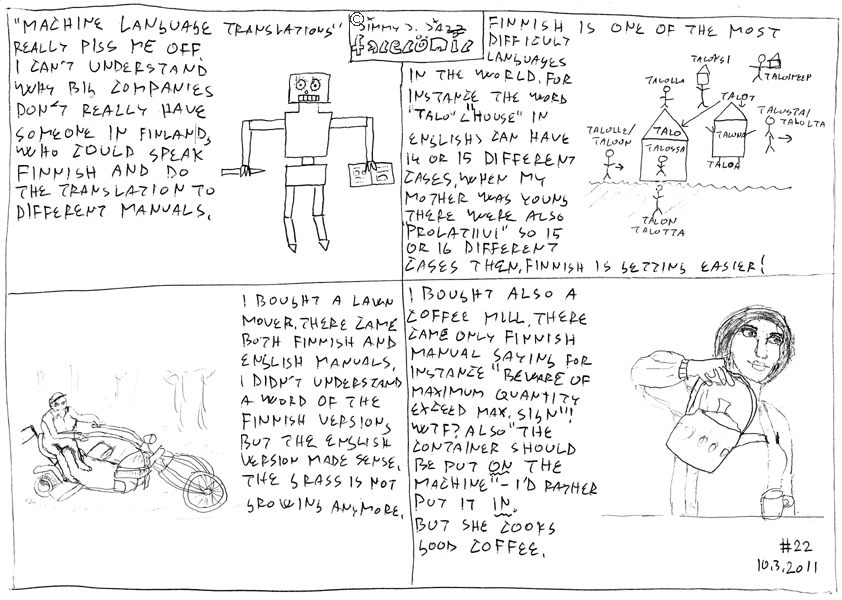 "MACHINE LANGUAGE TRANSLATIONS"
REALLY PISS ME OFF.
I CAN'T UNDERSTAND
WHY BIG COMPANIES
DON'T REALLY HAVE
SOMEONE IN FINLAND,
WHO COULD SPEAK
FINNISH AND DO
THE TRANSLATION TO
DIFFERENT MANUALS.
JIMMY D. JAZZ
FINNISH IS ONE OF THE MOST
DIFFICULT
LANGUAGES
IN THE WORLD. FOR
INSTANCE THE WORD
"TALO" ("HOUSE" IN
ENGLISH) CAN HAVE
14 OR 15 DIFFERENT
CASES. WHEN MY
MOTHER WAS YOUNG
THERE WERE ALSO
"PROLATIIVI" SO 15
OR 16 DIFFERENT
CASES THEN. FINNISH IS GETTING EASIER!
TALOKSI
TALOINEEN
TALOLLA
TALOT
TALOSTA/
TALOLTA
TALOLLE/
TALOON
TALO
TALONA
TALOSSA
TALOA
TALON
TALOTTA
I BOUGHT A LAWN
MOVER. THERE CAME
BOTH FINNISH AND
ENGLISH MANUALS.
I DIDN'T UNDERSTAND
A WORD OF THE
FINNISH VERSION,
BUT THE ENGLISH
VERSION MADE SENSE.
THE GRASS IS NOT
GROWING ANYMORE.
I BOUGHT ALSO A
COFFEE MILL. THERE
CAME ONLY FINNISH
MANUAL SAYING FOR
INSTANCE "BEWARE OF
MAXIMUM QUANTITY
EXCEED MAX. SIGN"!
WTF? ALSO "THE
CONTAINER SHOULD
BE PUT ON THE
MACHINE" - I'D RATHER
PUT IT IN.
BUT SHE COOKS
GOOD COFFEE.
#22
10.3.2011